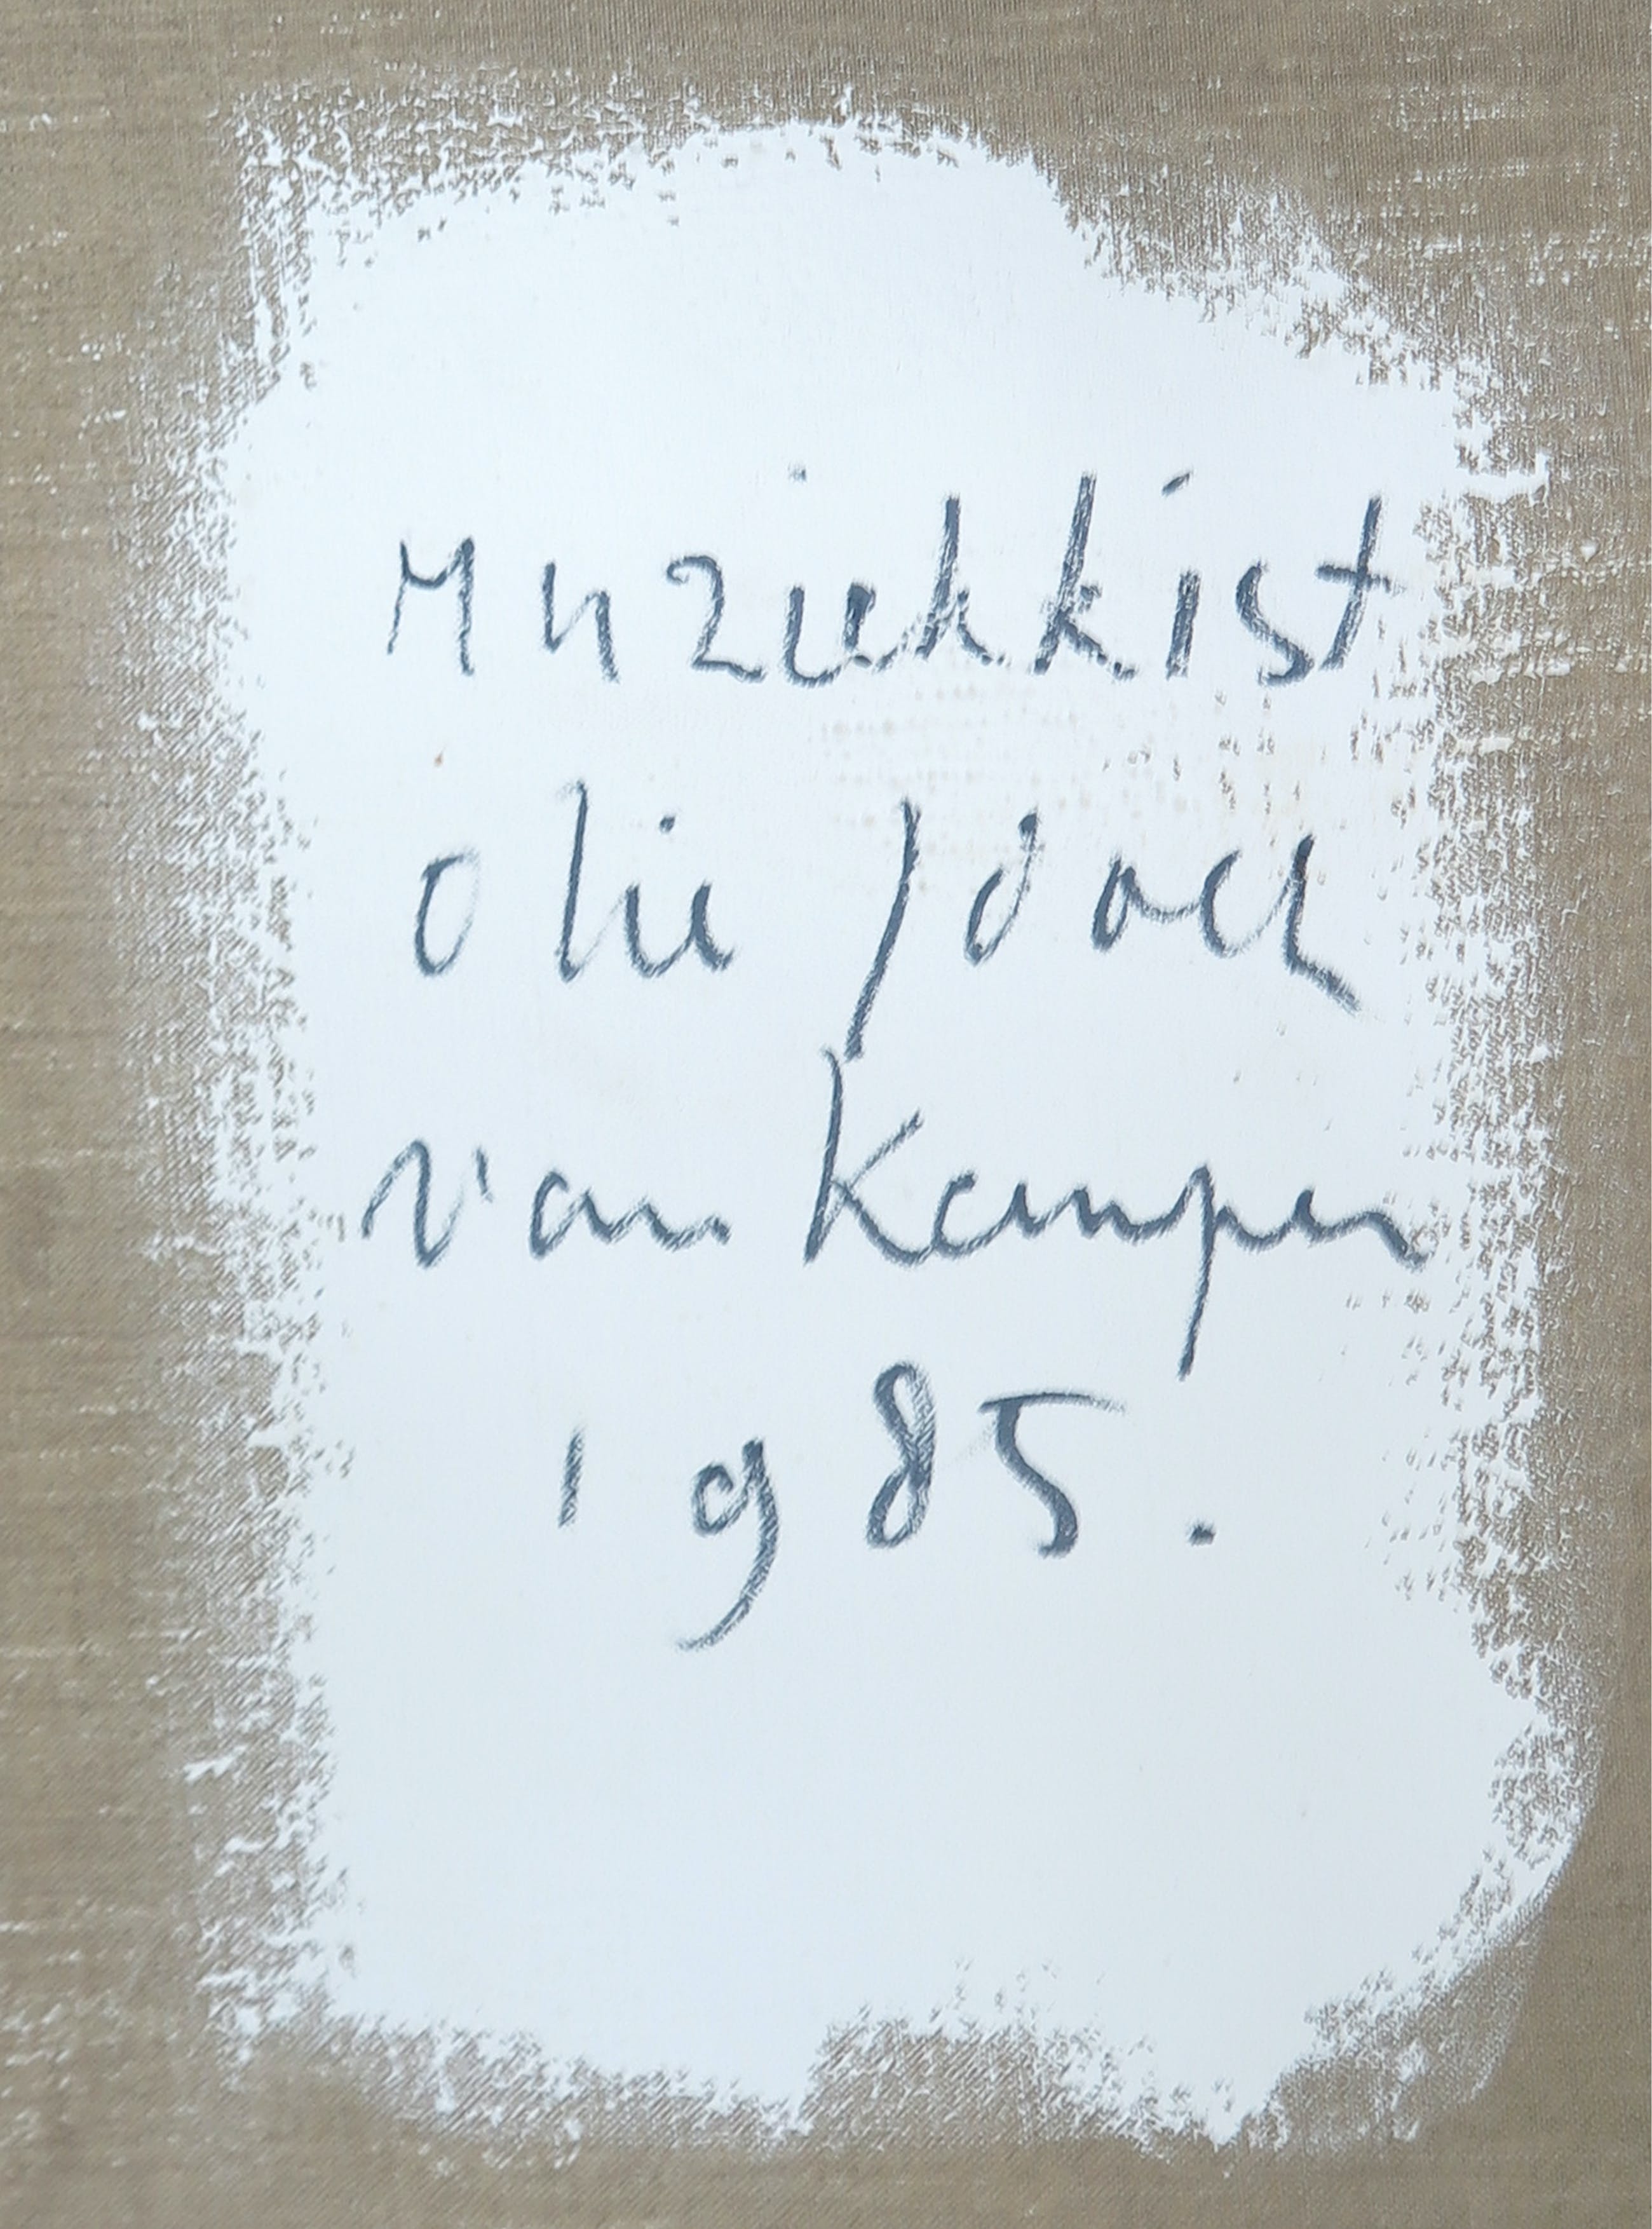 Muziekkist
olie / doek
van Kempen
1985.